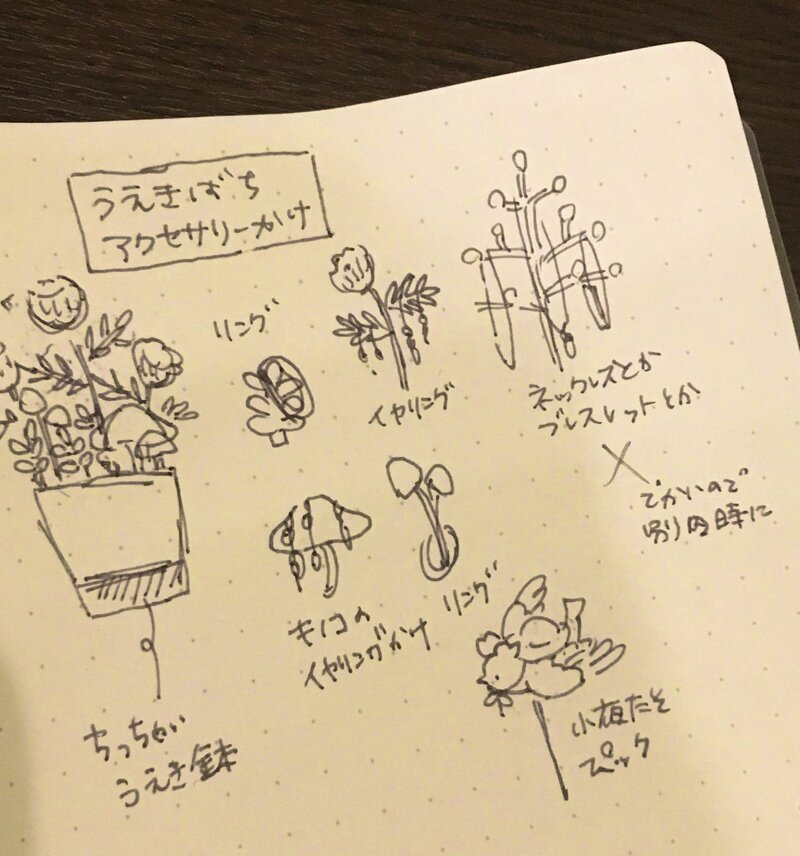 うえきばち
アクセサリーかけ
リング
イヤリング
ネックレスとか
ブレスレットとか
でかいので
別の時に
キノコの
イヤリングかけ
リング
ちっちゃい
うえき鉢
小夜たそ
ピック